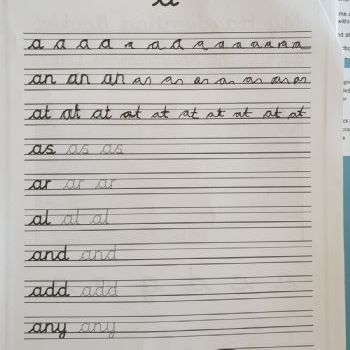 a
a a a a a a a a a a a a a a
an an an an an an an an an an
at at at at at at at at at at
as as as
ar ar ar
al al al
and and
add add
any any